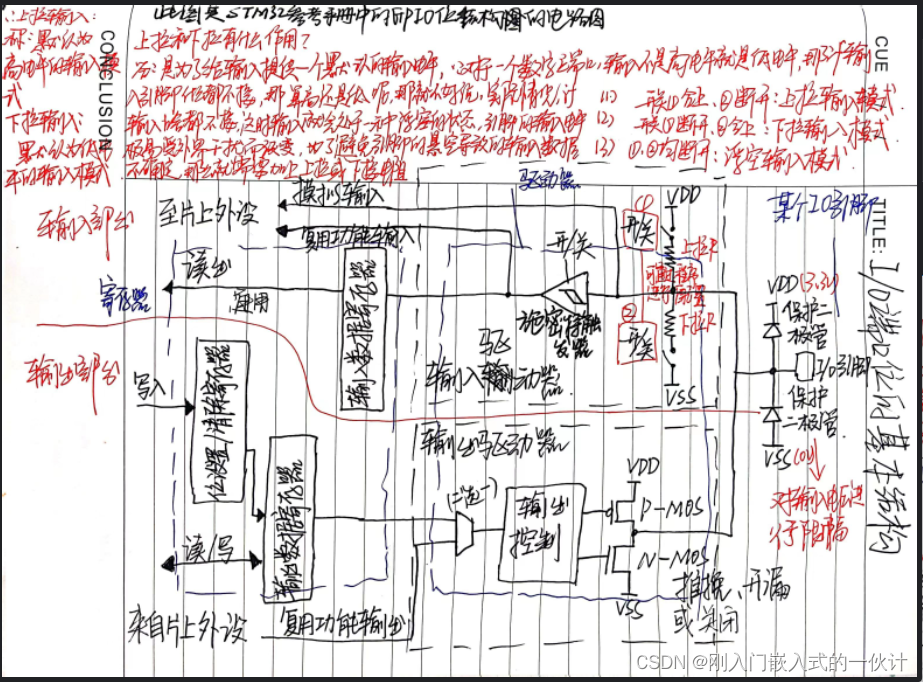 此图是STM32参考手册中的GPIO位结构图的电路图
CUE
CONCLUSION
TITLE: I/O端口位的基本结构
上拉输入:
称:默认为
高电平的输入模
式
下拉输入:
默认为低电
平的输入模式
上拉和下拉有什么作用?
答:是为了给输入提供一个默认的输入电平,
输入不是高电平就是低电平,
输入啥都不接,这时输入就会处于一种浮空的状态,引脚的输入电平
极易受外界干扰而改变,为了避免引脚的悬空导致的输入数据
(1) ①合上,②断开:上拉输入模式.
(2) ①断开、②合上:下拉输入模式
(3) ①、②均断开:浮空输入模式.
输入部分
寄存器
输出部分
至片上外设
模拟输入
复用功能输入
读出
输入数据寄存器
驱动器
开关
施密特触
发器
输入驱动器
①
开关
VDD
上拉R
可通过程序
进行配置
下拉R
②
开关
VSS
某个IO引脚
VDD(3.3V)
保护二
极管
I/O引脚
保护
二极管
VSS(0V)
对输入电压进
行限幅
写入
位设置/清除寄存器
输出数据寄存器
读/写
来自片上外设
复用功能输出
输出驱动器
(二选一)
输出
控制
VDD
P-MOS
N-MOS
VSS
推挽、开漏
或关闭
CSDN @刚入门嵌入式的一伙计